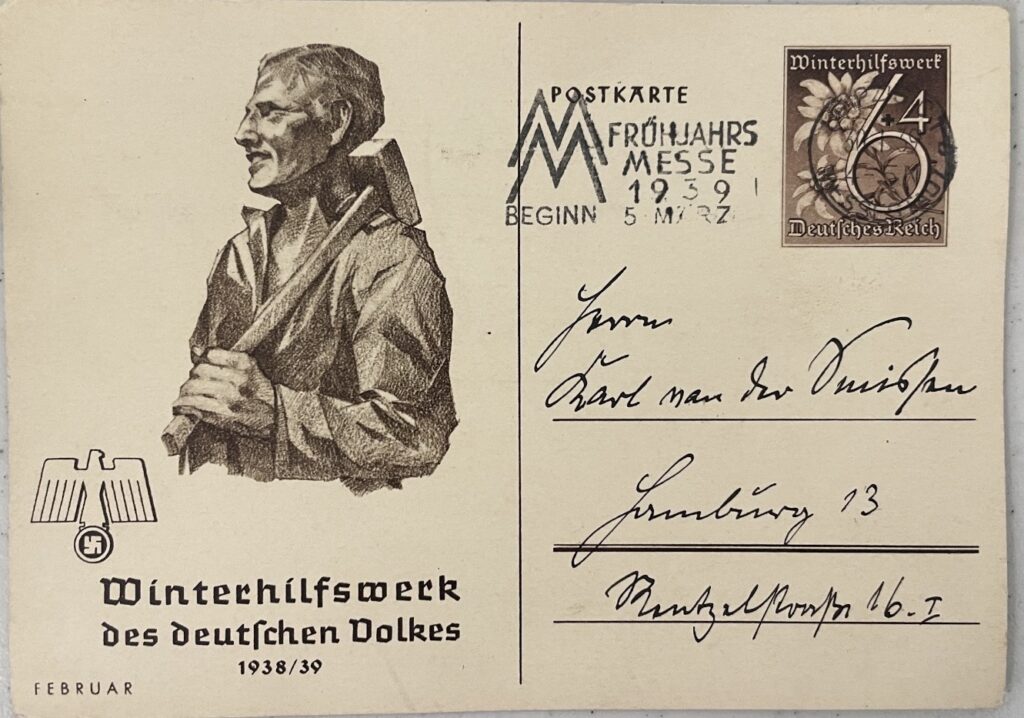 Winterhilfswerk
des deutſchen Volkes
1938/39
FEBRUAR
POSTKARTE
FRÜHJAHRS
MESSE
1939
BEGINN 5 MÄRZ
Winterhilfswerk
6+4
Deutſches Reich
Herrn
Karl van der Smissen
Hamburg 13
Rentzelstraße 16. I